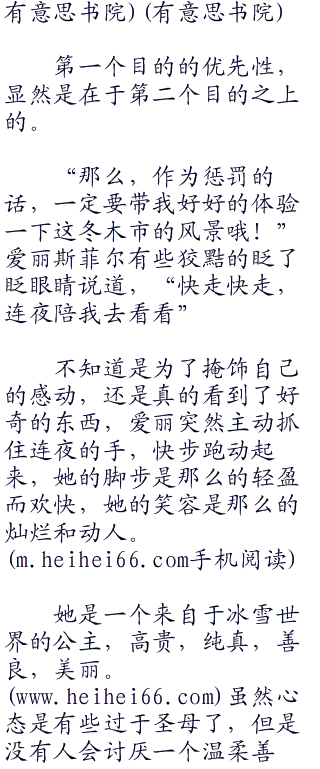 有意思书院)(有意思书院)
第一个目的的优先性，
显然是在于第二个目的之上
的。
“那么，作为惩罚的
话，一定要带我好好的体验
一下这冬木市的风景哦！”
爱丽斯菲尔有些狡黠的眨了
眨眼睛说道，“快走快走，
连夜陪我去看看”
不知道是为了掩饰自己
的感动，还是真的看到了好
奇的东西，爱丽突然主动抓
住连夜的手，快步跑动起
来，她的脚步是那么的轻盈
而欢快，她的笑容是那么的
灿烂和动人。
(m.heihei66.com手机阅读)
她是一个来自于冰雪世
界的公主，高贵，纯真，善
良，美丽。
(www.heihei66.com)虽然心
态是有些过于圣母了，但是
没有人会讨厌一个温柔善